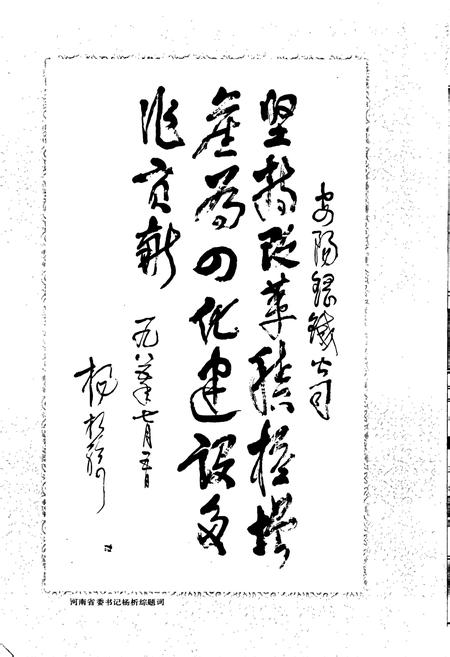 安陽鋼鐵公司
坚持改革積極增
產为四化建设多
作贡献
一九八五年七月五日
杨析综
河南省委书记杨析综题词